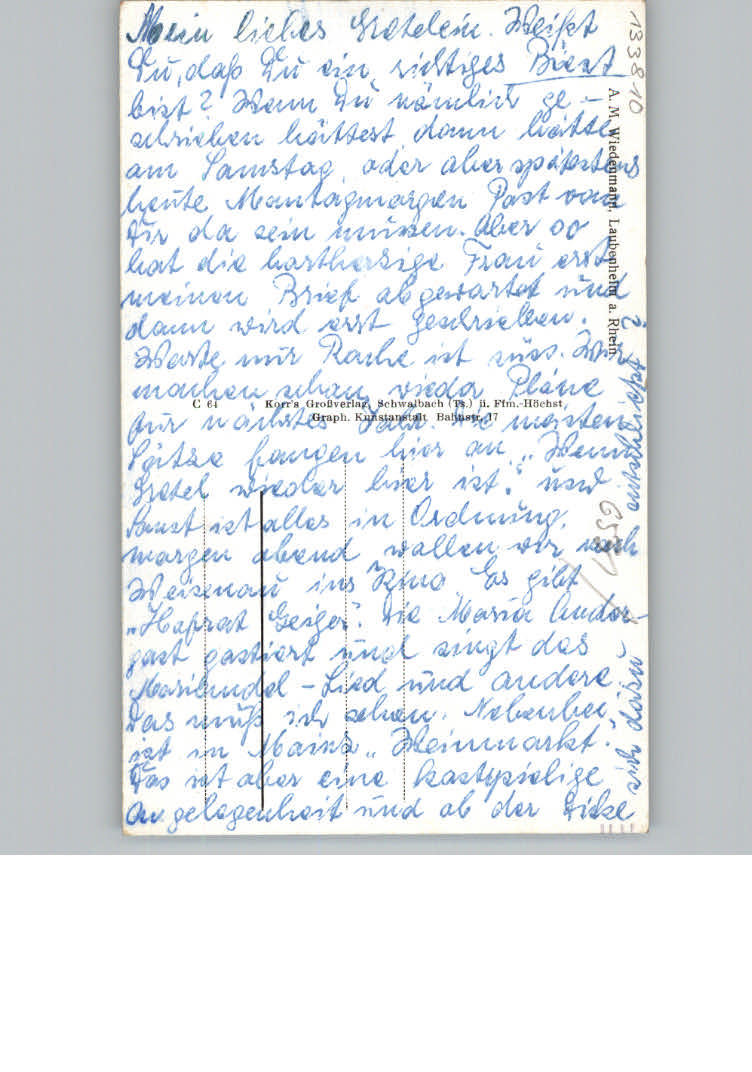 Mein liebes Gretelein. Weißt
Du, daß Du ein richtiges Biest
bist? Wenn Du nämlich ge-
schrieben hättest dann hätte
am Samstag, oder aber spätestens
heute Montagmorgen Post von
Dir da sein müssen. Aber so
hat die hartherzige Frau erst
meinen Brief abgewartet und
dann wird erst geschrieben.
Warte nur Rache ist süss. Wir
machen schon wieda Pläne
für nächstes Jahr. Die meisten
Sätze fangen hier an „Wenn
Gretel wieder hier ist." und
Sonst ist alles in Ordnung.
morgen abend wollen wir nach
Weisenau ins Kino Es gibt
„Hofrat Geiger". Die Maria Ander-
gast gastiert und singt das
Mariandel-Lied und andere.
Das muß ich sehen. Nebenbei
ist in Mainz „Weinmarkt".
Das ist aber eine kostspielige
Angelegenheit und ob der Dicke
sich dazu
entschließt?
133810
A. M. Wiedenmann, Laubenheim a. Rhein
C 64
Korr's Großverlag, Schwalbach (Ts.) ü. Ffm.-Höchst,
Graph. Kunstanstalt, Bahnstr. 17